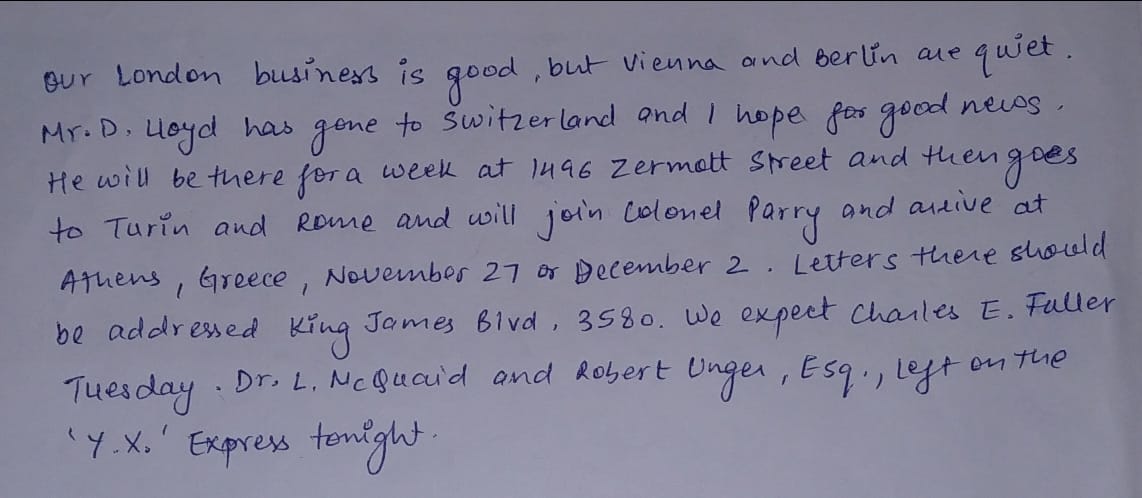 Our London business is good, but Vienna and Berlin are quiet.
Mr. D. Lloyd has gone to Switzerland and I hope for good news.
He will be there for a week at 1496 Zermott Street and then goes
to Turin and Rome and will join Colonel Parry and arrive at
Athens, Greece, November 27 or December 2. Letters there should
be addressed King James Blvd, 3580. We expect Charles E. Fuller
Tuesday. Dr. L. McQuaid and Robert Unger, Esq., left on the
'Y.X.' Express tonight.